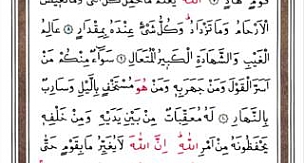 قَوْمٍ هَادٍ ۝ اَللّٰهُ يَعْلَمُ مَا تَحْمِلُ كُلُّ اُنْثٰى وَمَا تَغٖيضُ
الْاَرْحَامُ وَمَا تَزْدَادُ وَكُلُّ شَىْءٍ عِنْدَهُ بِمِقْدَارٍ ۝ عَالِمُ
الْغَيْبِ وَالشَّهَادَةِ الْكَبٖيرُ الْمُتَعَالِ ۝ سَوَٓاءٌ مِنْكُمْ مَنْ
اَسَرَّ الْقَوْلَ وَمَنْ جَهَرَ بِهٖ وَمَنْ هُوَ مُسْتَخْفٍ بِالَّيْلِ وَسَارِبٌ
بِالنَّهَارِ ۝ لَهُ مُعَقِّبَاتٌ مِنْ بَيْنِ يَدَيْهِ وَمِنْ خَلْفِهٖ
يَحْفَظُونَهُ مِنْ اَمْرِ اللّٰهِ اِنَّ اللّٰهَ لَا يُغَيِّرُ مَا بِقَوْمٍ حَتّٰى